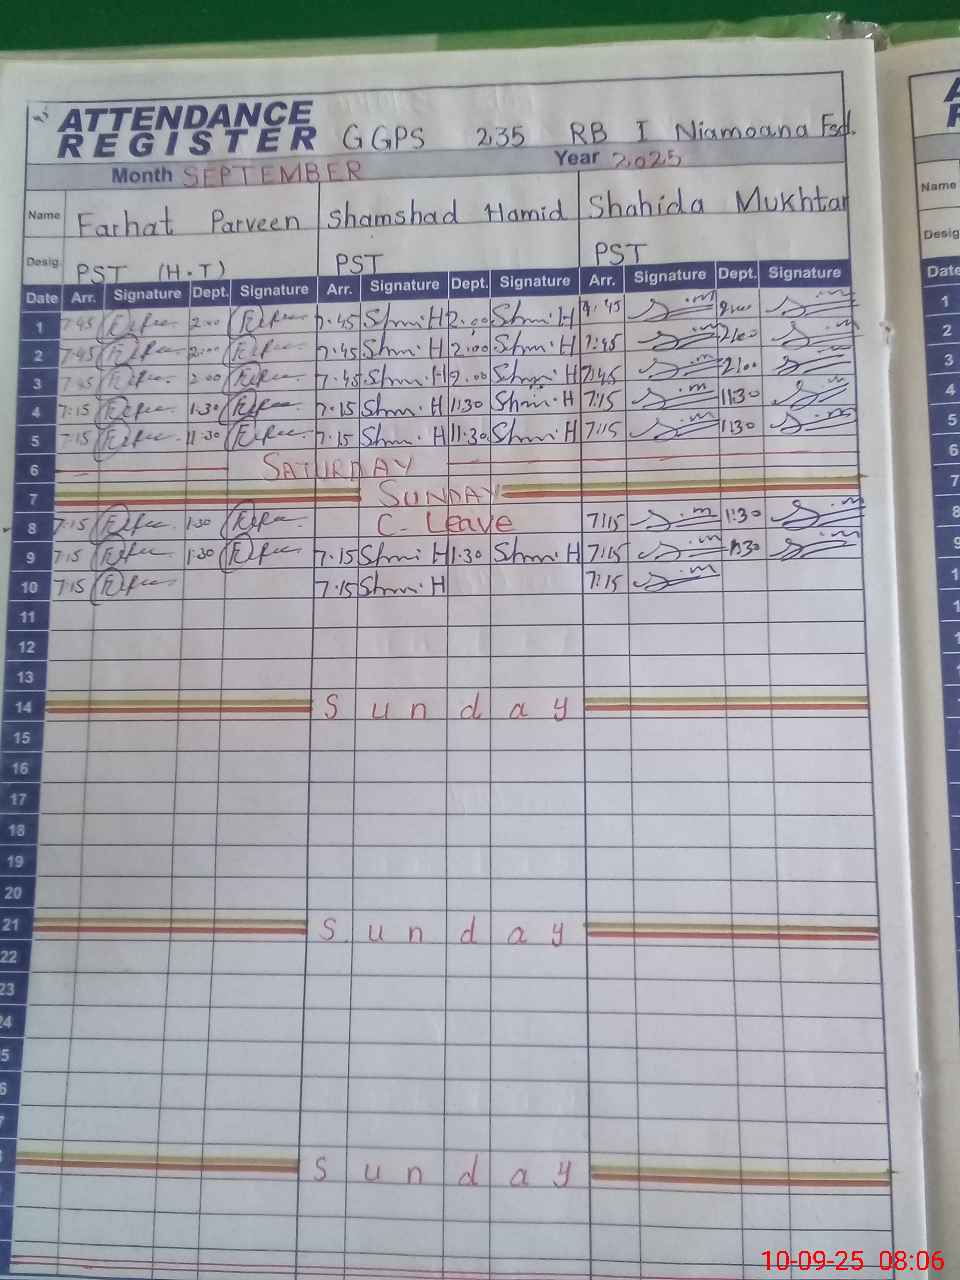 ATTENDANCE
REGISTER GGPS 235 RB I Niamoana Fsd.
Month SEPTEMBER Year 2025
Name Farhat Parveen Shamshad Hamid Shahida Mukhtar
Desig. PST (H.T) PST PST
Date Arr. Signature Dept. Signature Arr. Signature Dept. Signature Arr. Signature Dept. Signature
1 7:45 2:00 7.45 Shmi.H 2.00 Shmi.H 7:45 2:00
2 7:45 2:00 7.45 Shmi.H 2:00 Shmi.H 7:45 2:00
3 7:45 2:00 7.45 Shmi.H 2.00 Shmi.H 7:45 2:00
4 7:15 1:30 7.15 Shmi.H 11:30 Shmi.H 7:15 11:30
5 7:15 11:30 7.15 Shmi.H 11.30 Shmi.H 7:15 11:30
6 SATURDAY
7 SUNDAY
8 7:15 1:30 C- Leave 7:15 1:30
9 7:15 1:30 7.15 Shmi.H 1.30 Shmi.H 7:15 1:30
10 7:15 7.15 Shmi.H 7:15
11
12
13
14 Sunday
15
16
17
18
19
20
21 Sunday
22
23
24
5
6
Sunday
Name
Desig
Date
1
2
3
4
5
6
7
8
9
10-09-25 08:06